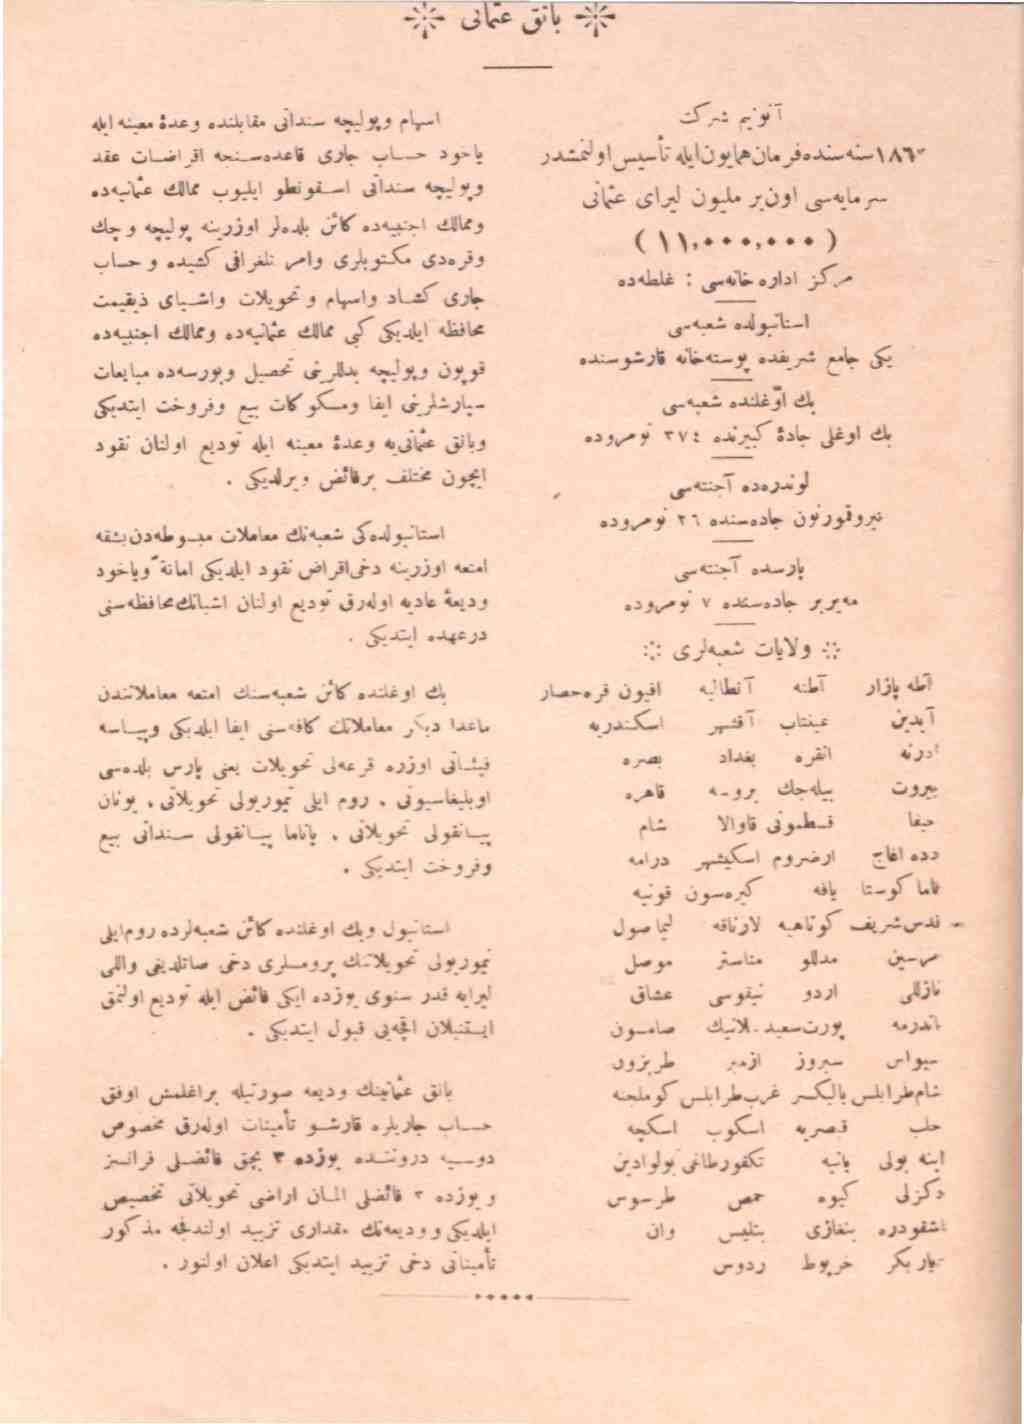 بانق عثمانی
آنونیم شرکت
سنه‌سنده فرمان همایون ایله تأسیس اولنمشدر
سرمایه‌سی اون بر ملیون لیرای عثمانی
( ١١,٠٠٠,٠٠٠ )
مرکز اداره خانه‌سی : غلطه‌ده
استانبولده شعبه‌سی
یکی جامع شریفده پوسته‌خانه قارشوسنده
بك اوغلنده شعبه‌سی
بك اوغلی جادهٔ کبیرنده ٣٧٤ نومروده
لوندره‌ده آجنته‌سی
جاده‌سنده ٢٦ نومروده
پارسده آجنته‌سی
مه‌یربر جاده‌سنده ٧ نومروده
ولایات شعبه‌لری
آطه پازار آطنه آنطالیه افیون قره‌حصار
آیدین عینتاب آقشهر اسکندریه
ادرنه انقره بغداد بصره
بیروت بیله‌جك بروسه قاهره
حیفا قسطمونی قاوالا شام
دده اغاج ارضروم اسکیشهر درامه
ماغا کوستا یافه کیره‌سون قونیه
قدس شریف کوتاهیه لارناقه لیماصول
مرسین مدللو مناستر موصل
نازللی اردو نیقوسی عشاق
پاندرمه پورت‌سعید سلانیك صامسون
سیواس سیروز ازمیر طربزون
شام‌طرابلس بالیکسر غرب‌طرابلس کوملجنه
حلب قیصریه اسکوب اسکچه
اینه بولی یانیه تکفورطاغی بولوادین
دکزلی کیوه حمص طرسوس
اشقودره بنغازی بتلیس وان
دیار بکر خرپوط ردوس
اسهام وپولیچه سنداتی مقابلنده وعدهٔ معینه ایله
یاخود حساب جاری قاعده‌سنجه اقراضات عقد
وپولیچه سنداتی اسقونطو ایلیوب ممالك عثمانیه‌ده
وممالك اجنبیه‌ده کائن بلده‌لر اوزرینه پولیچه وچك
وقره‌دی مکتوبلری وامر تلغرافی کشیده وحساب
جاری کشاد واسهام وتحویلات واشیای ذیقیمت
محافظه ایلدیکی کبی ممالك عثمانیه‌ده وممالك اجنبیه‌ده
قوپون وپولیچه بدللرینی تحصیل وبورسه‌ده مبایعات
سپارشلرینی ایفا ومسکوکات بیع وفروخت ایتدیکی
وبانق عثمانی‌یه وعدهٔ معینه ایله تودیع اولنان نقود
ایچون مختلف برفائض ویرلدیکی .
استانبولده‌کی شعبه‌نك معاملات مبسوطه‌دن بشقه
امتعه اوزرینه دخی اقراض نقود ایلدیکی امانةً ویاخود
ودیعهٔ عادیه اوله‌رق تودیع اولنان اشیانك محافظه‌سنی
درعهده ایتدیکی .
بك اوغلنده کائن شعبه‌سنك امتعه معاملاتندن
ماعدا دیکر معاملاتك کافه‌سنی ایفا ایلدیکی وپیاسه
فیئاتی اوزره قرعه‌لی تحویلات یعنی پارس بلده‌سی
اوبلیغاسیونی ، روم ایلی تیموریولی تحویلاتی ، یونان
پیانقولی تحویلاتی ، پاناما پیانقولی سنداتی بیع
وفروخت ایتدیکی .
استانبول وبك اوغلنده کائن شعبه‌لرده روم‌ایلی
تیموریولی تحویلاتنك پرومسلری دخی صاتلدیغی واللی
لیرایه قدر سنوی یوزده ایکی فائض ایله تودیع اولنمق
ایستنیلان اقچه‌یی قبول ایتدیکی .
بانق عثمانینك ودیعه صورتیله براغلمش اوفق
حساب جاریلره قارشو تأمینات اوله‌رق مخصوص
دوسیه دروننده یوزده ٣ بچق فائضلی فرانسز
و یوزده ٣ فائضلی المان اراضی تحویلاتی تخصیص
ایلدیکی وودیعه‌نك مقداری تزیید اولندقجه مذکور
تأمیناتی دخی تزیید ایتدیکی اعلان اولنور .